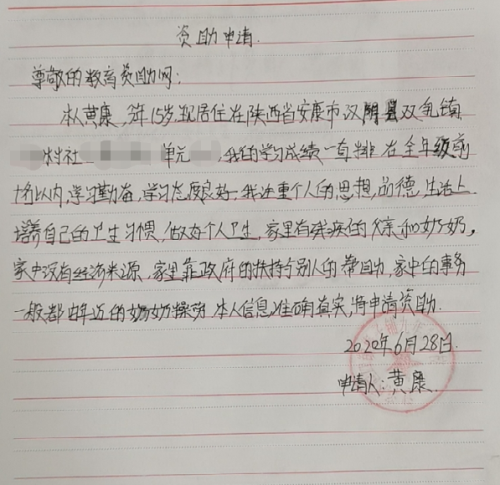 资助申请
尊敬的教育资助网:
本人黄康,今年15岁,现居住在陕西省安康市汉阴县双乳镇
村社 单元 ,我的学习成绩一直排在全年级前
10名以内,学习勤奋,学习态度良好.我注重个人的思想,品德,生活上
培养自己的卫生习惯,做好个人卫生.家里有残疾的父亲和奶奶,
家中没有经济来源.家里靠政府的扶持和别人的帮助,家中的事务
一般都由年迈的奶奶操劳.本人信息准确真实,特申请资助.
2020年6月28日.
申请人:黄康